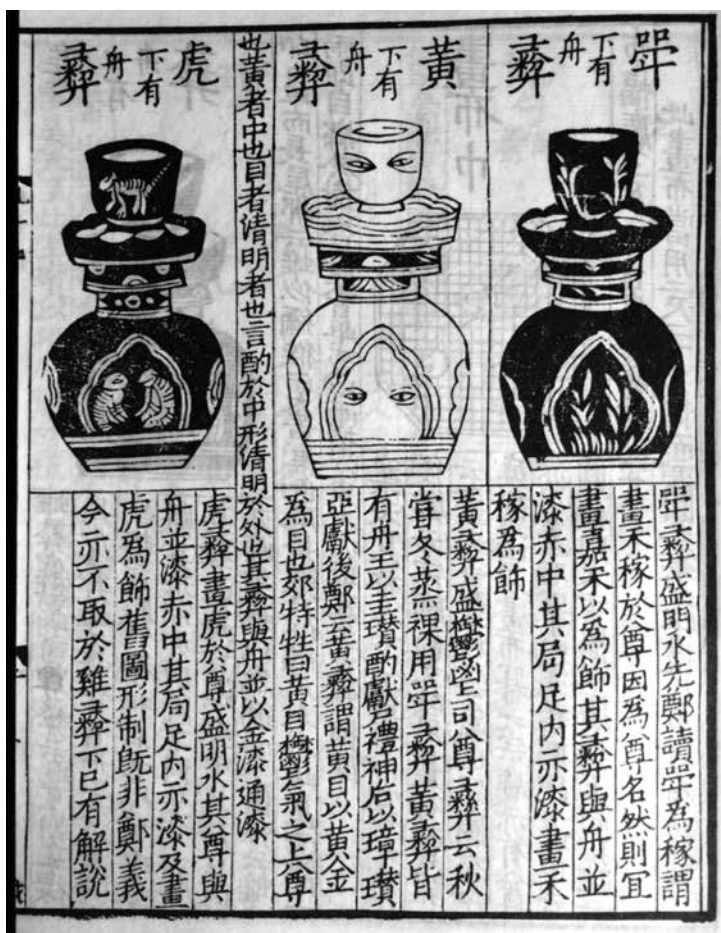 斝彝
下有
舟
斝彝盛明水先鄭讀斝為稼謂
畫禾稼於尊因為尊名然則冝
畫嘉禾以為飾其彝與舟並
漆赤中其局足內亦漆畫禾
稼為飾
黃彝
下有
舟
黃彝盛欝鬯司尊彝云秋
甞冬蒸祼用斝彝黃彝皆
有舟王以圭瓚酌獻尸禮神后以璋瓚
亞獻後鄭云黃彝謂黃目以黃金
為目也郊特牲曰黃目欝氣之上尊
也黃者中也目者清明者也言酌於中形清明於外也其彝與舟並以金漆通漆
虎彝
下有
舟
虎彝畫虎於尊盛明水其尊與
舟並漆赤中其局足內亦漆及畫
虎為飾舊圖形制旣非鄭義
今亦不取於雞彝下已有解說